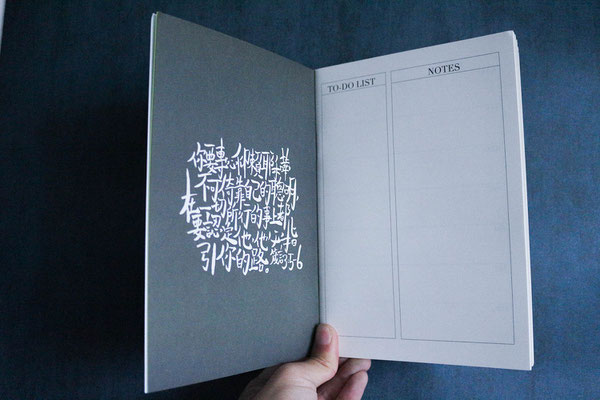 你要專心仰賴耶和華
不可倚靠自己的聰明,
在一切所行的事上都
要認定他,他必指
引你的路。箴言3:5-6
TO-DO LIST
NOTES